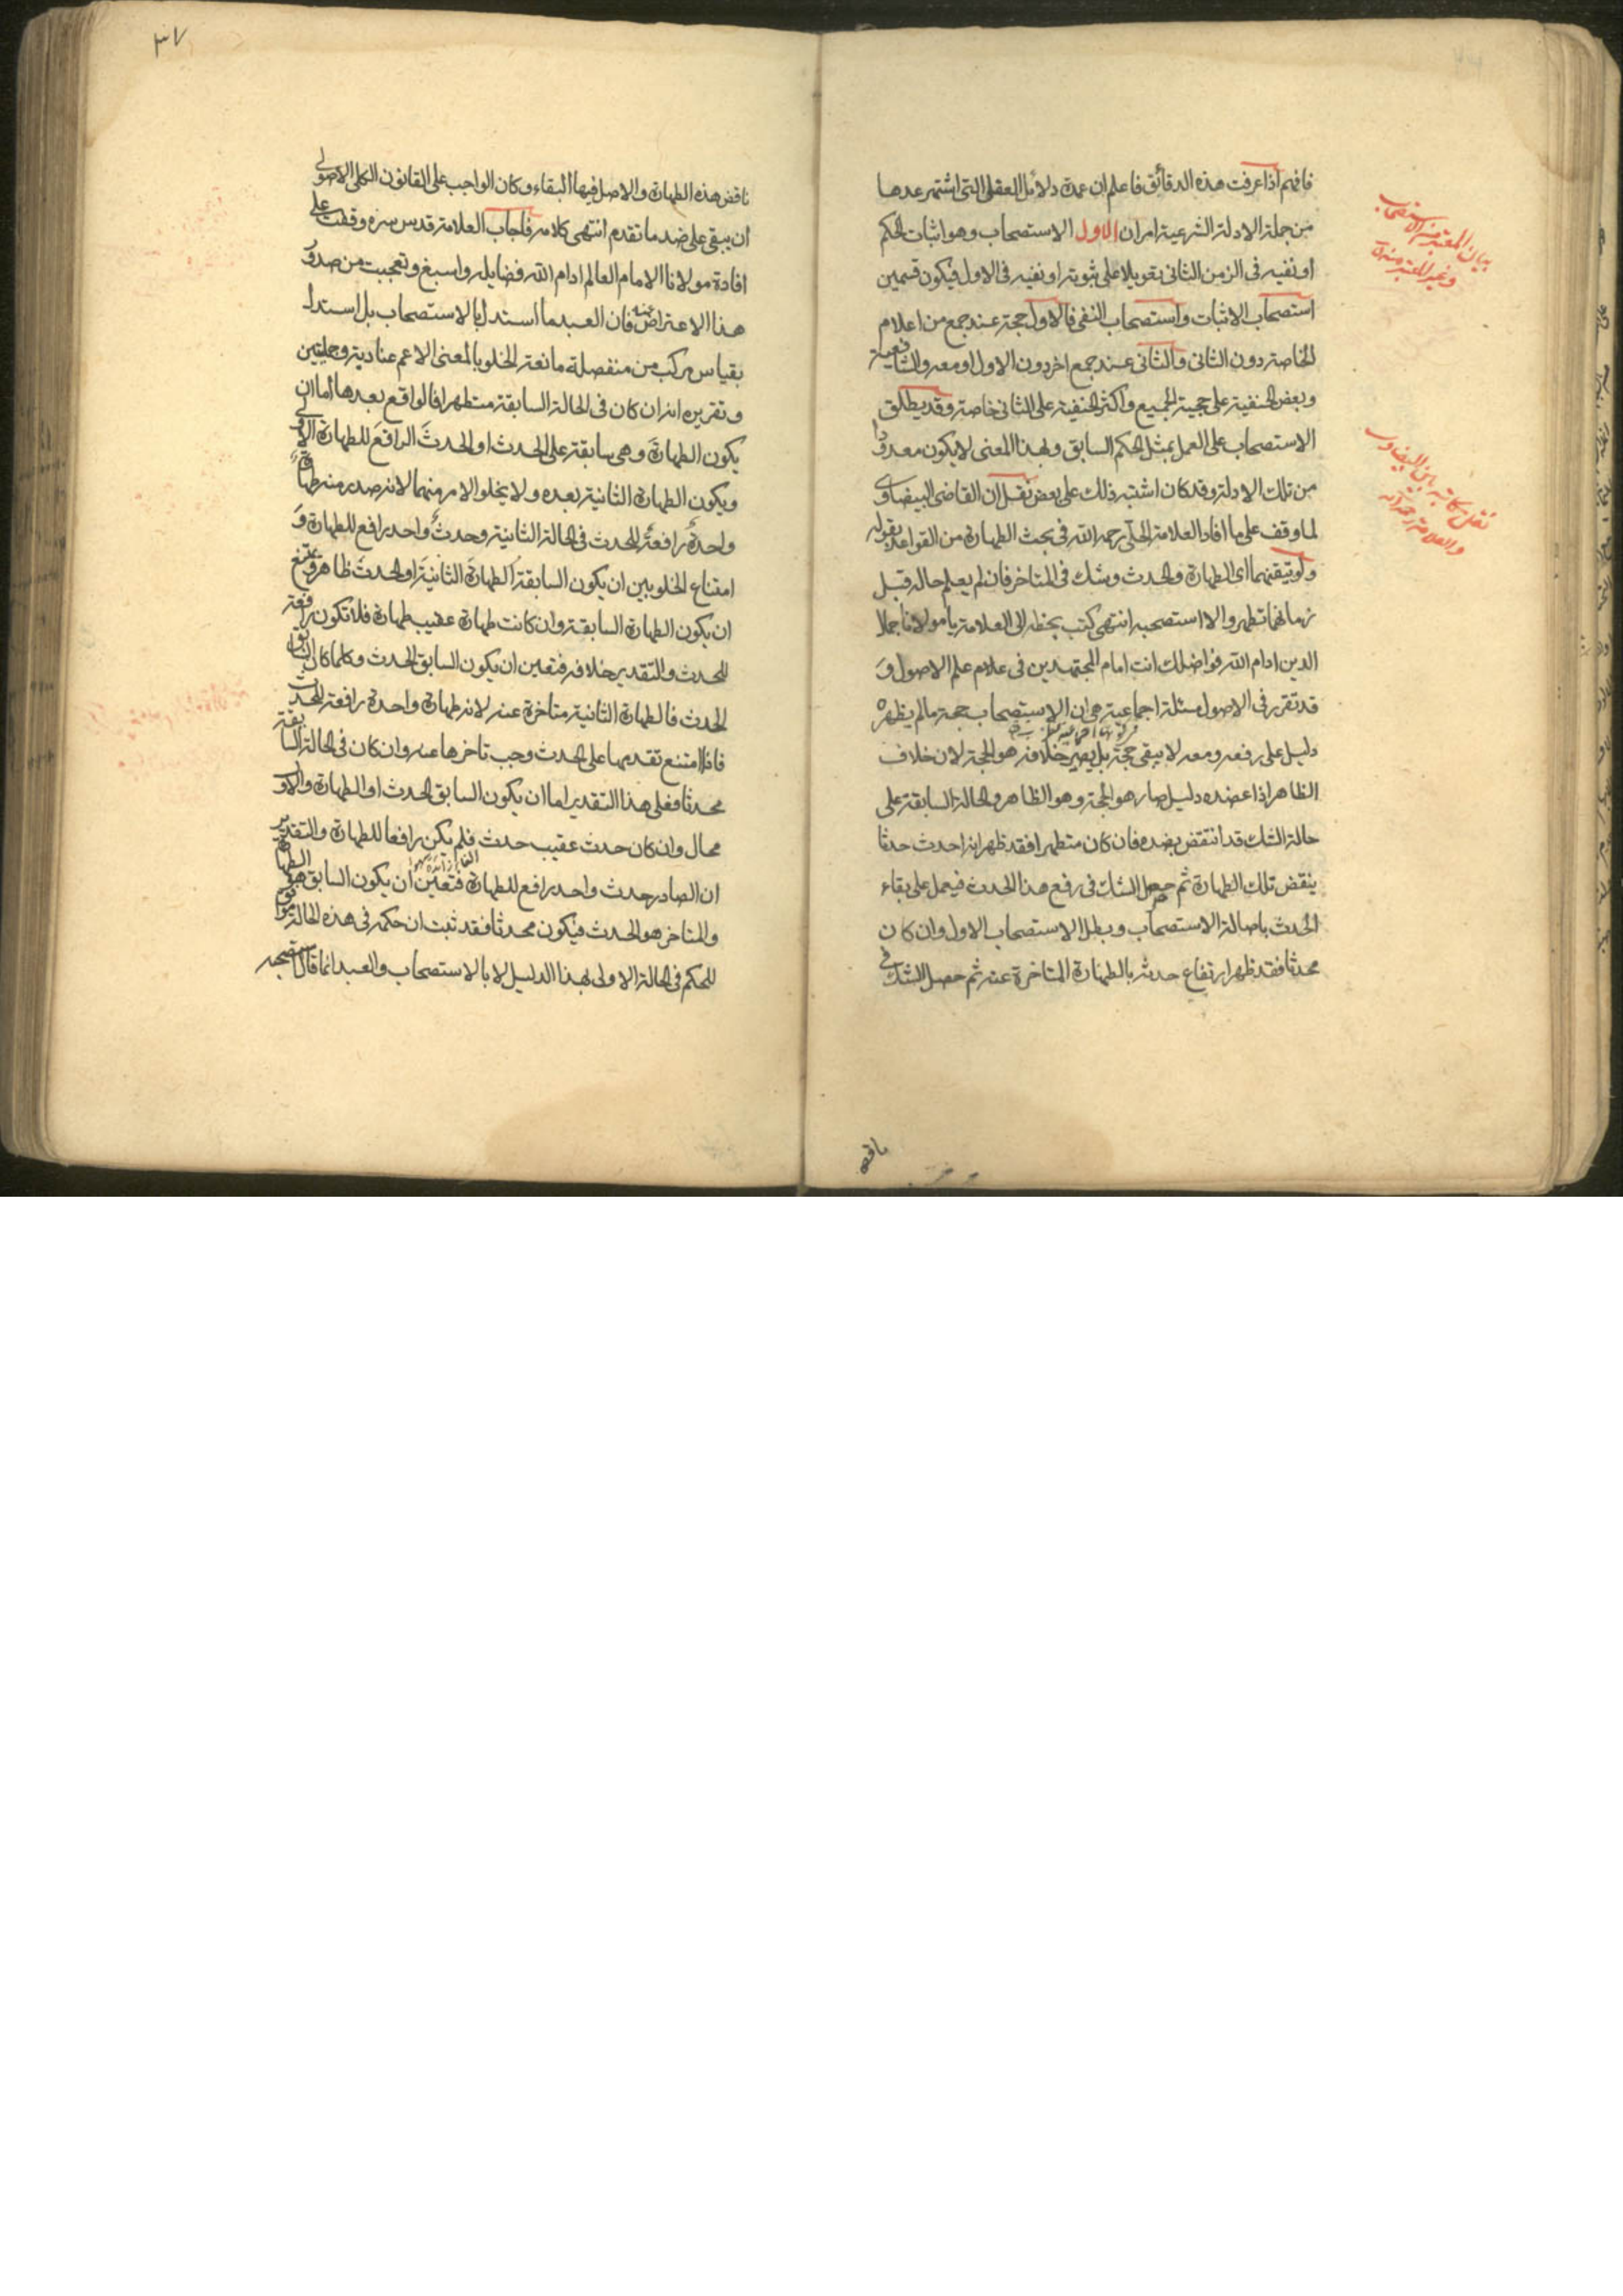 فافهم اذا عرفت هذه الدقائق فاعلم ان عمدة دلائل العقل التى اشتهر عدها
من جملة الادلة الشرعية امران الاول الاستصحاب وهو اثبات الحكم
او نفيه فى الزمن الثانى تعويلا على ثبوته او نفيه فى الاول فيكون قسمين
استصحاب الاثبات واستصحاب النفى فالاول حجة عند جمع من اعلام
الخاصة دون الثانى والثانى عند جمع اخر دون الاول او معه والشافعية
وبعض الحنفية على حجية الجميع واكثر الحنفية على الثانى خاصة وقد يطلق
الاستصحاب على العمل بمثل الحكم السابق وبهذا المعنى لا يكون معدودا
من تلك الادلة وقد كان اشتبه ذلك على بعض نقل ان القاضى البيضاوى
لما وقف على ما افاد العلامة الحلى رحمه الله فى بحث الطهارة من القواعد بقوله
ولو تيقنهما اى الطهارة والحدث وشك فى المتاخر فان لم يعلم حاله قبل
زمانهما تطهر والا استصحبه انتهى كتب بخطه الى العلامة يا مولانا جمال
الدين ادام الله فواضلك انت امام المجتهدين فى علام علم الاصول و
قد تقرر فى الاصول مسئلة اجماعية هى ان الاستصحاب حجة ما لم يظهر
دليل على رفعه ومعه لا يبقى حجة بل يصير خلافه هو الحجة لان خلاف
الظاهر اذا عضده دليل صار هو الحجة وهو الظاهر والحالة السابقة على
حالة الشك قد انتقض بضده فان كان متطهرا فقد ظهر انه احدث حدثا
ينقض تلك الطهارة ثم حصل الشك فى رفع هذا الحدث فيعمل على بقاء
الحدث باصالة الاستصحاب وبطل الاستصحاب الاول وان كان
محدثا فقد ظهر ارتفاع حدثه بالطهارة المتاخرة عنه ثم حصل الشك فى
ناقض
بيان المعتبر من الاستصحاب
وغير المعتبر منه
نقل مكاتبة بين البيضاوى
والعلامة رحمه الله
٣٧
ناقض هذه الطهارة والاصل فيها البقاء وكان الواجب على القانون الكلى الاصولى
ان يبقى على ضد ما تقدم انتهى كلامه فاجاب العلامة قدس سره وقفت على
افادة مولانا الامام العالم ادام الله فضايله واسبغ وتعجبت من صدور
هذا الاعتراض عنه فان العبد ما استدل بالاستصحاب بل استدل
بقياس مركب من منفصلة مانعة الخلو بالمعنى الاعم عنادية وحمليتين
وتقريره انه ان كان فى الحالة السابقة متطهرا فالواقع بعدها اما ان
يكون الطهارة وهى سابقة على الحدث او الحدث الرافع للطهارة الاولى
ويكون الطهارة الثانية بعده ولا يخلو الامر منهما لانه صدر منه طهارة
واحدة رافعة للحدث فى الحالة الثانية وحدث واحد رافع للطهارة و
امتناع الخلو بين ان يكون السابقة الطهارة الثانية او الحدث ظاهر ويمتنع
ان يكون الطهارة السابقة وان كانت طهارة عقيب طهارة فلا تكون رافعة
للحدث والتقدير خلافه فتعين ان يكون السابق الحدث وكلما كان السابق
الحدث فالطهارة الثانية متاخرة عنه لانه طهارة واحدة رافعة للحدث
فاذا امتنع تقديمها على الحدث وجب تاخرها عنه وان كان فى الحالة السابقة
محدثا فعلى هذا التقدير اما ان يكون السابق الحدث او الطهارة والاول
محال وان كان حدث عقيب حدث فلم يكن رافعا للطهارة والتقدير
ان الصادر حدث واحد رافع للطهارة فتعين ان يكون السابق هو الطهارة
والمتاخر هو الحدث فيكون محدثا فقد ثبت ان حكمه فى هذه الحالة موافق
للحكم فى الحالة الاولى بهذا الدليل لا بالاستصحاب والعبد انما قال استصحبه